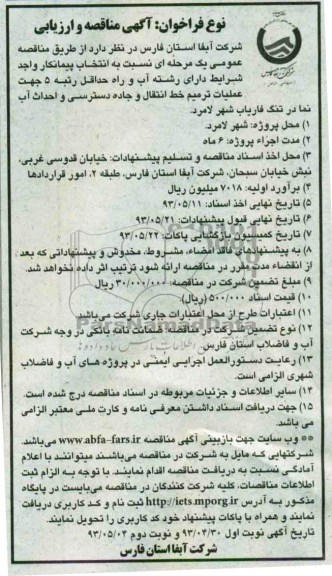 نوع فراخوان: آگهی مناقصه و ارزیابی
شرکت آبفا استان فارس در نظر دارد از طریق مناقصه
عمومی یک مرحله ای نسبت به انتخاب پیمانکار واجد
شرایط دارای رشته آب و راه حداقل رتبه ۵ جهت
عملیات ترمیم خط انتقال و جاده دسترسی و احداث آب
نما در تنگ فاریاب شهر لامرد.
۱) محل پروژه: شهر لامرد.
۲) مدت اجراء پروژه: ۶ ماه
۳) محل اخذ اسناد مناقصه و تسلیم پیشنهادات: خیابان قدوسی غربی،
نبش خیابان سبحان، شرکت آبفا استان فارس، طبقه ۲، امور قراردادها
۴) برآورد اولیه: ۷۰۱۸ میلیون ریال
۵) تاریخ نهایی اخذ اسناد: ۹۳/۰۵/۱۱
۶) تاریخ نهایی قبول پیشنهادات: ۹۳/۰۵/۲۱
۷) تاریخ کمیسیون بازگشایی پاکات: ۹۳/۰۵/۲۲
۸) به پیشنهادهای فاقد امضاء، مشروط، مخدوش و پیشنهاداتی که بعد
از انقضاء مدت مقرر در مناقصه ارائه شود ترتیب اثر داده نخواهد شد.
۹) مبلغ تضمین شرکت در مناقصه: ۳۰۰/۰۰۰/۰۰۰ ریال
۱۰) قیمت اسناد ۵۰۰/۰۰۰ (ریال)
۱۱) اعتبارات طرح از محل اعتبارات جاری شرکت می‌باشد
۱۲) نوع تضمین شرکت در مناقصه: ضمانت نامه بانکی در وجه شرکت
آب و فاضلاب استان فارس.
۱۳) رعایت دستورالعمل اجرایی ایمنی در پروژه های آب و فاضلاب
شهری الزامی است.
۱۴) سایر اطلاعات و جزئیات مربوطه در اسناد مناقصه درج شده است.
۱۵) جهت دریافت اسناد داشتن معرفی نامه و کارت ملی معتبر الزامی
می باشد.
** وب سایت جهت بازبینی آگهی مناقصه www.abfa-fars.ir می‌باشد.
شرکتهایی که مایل به شرکت در مناقصه می‌باشند میتوانند با اعلام
آمادگی نسبت به دریافت مناقصه اقدام نمایند. با توجه به الزام ثبت
اطلاعات مناقصات، کلیه شرکت کنندگان در مناقصه می‌بایست در پایگاه
مذکور به آدرس http://iets.mporg.ir ثبت نام و کد کاربری دریافت
نمایند و همراه با پاکات پیشنهاد خود کد کاربری را تحویل نمایند.
تاریخ آگهی نوبت اول ۹۳/۰۴/۳۰ و نوبت دوم ۹۳/۰۵/۰۴
شرکت آبفا استان فارس